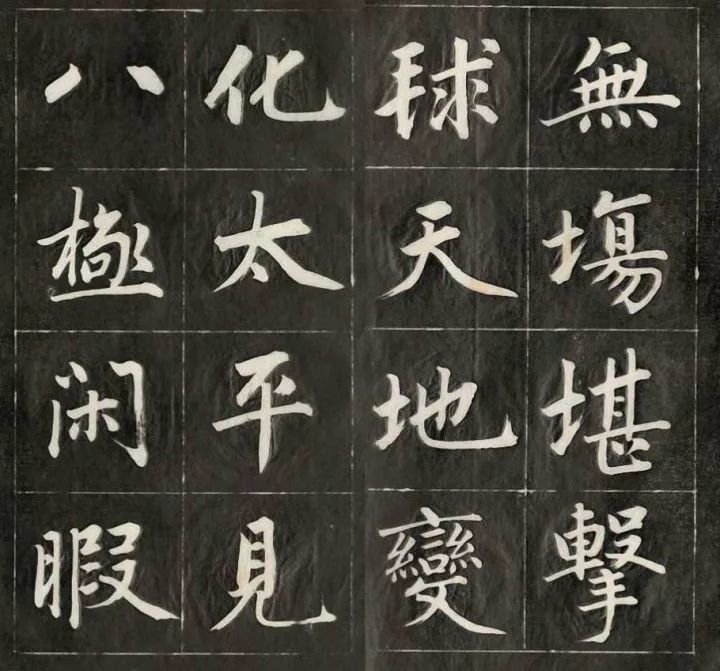 無塲堪擊
球天地變
化太平見
八極閑暇